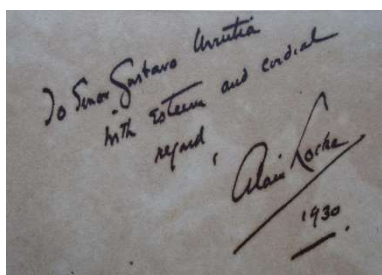 To Senor Gustavo Urrutia
with esteem and cordial
regard,
Alain Locke
1930.